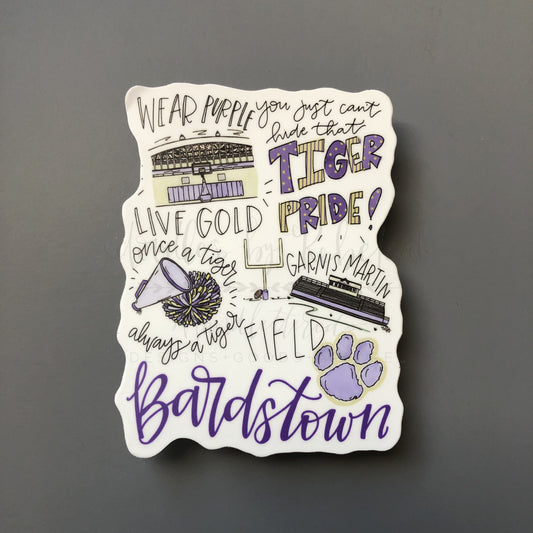 WEAR PURPLE
LIVE GOLD
once a tiger
always a tiger
you just can't
hide that
TIGER
PRIDE!
GARNIS MARTIN
FIELD
Bardstown